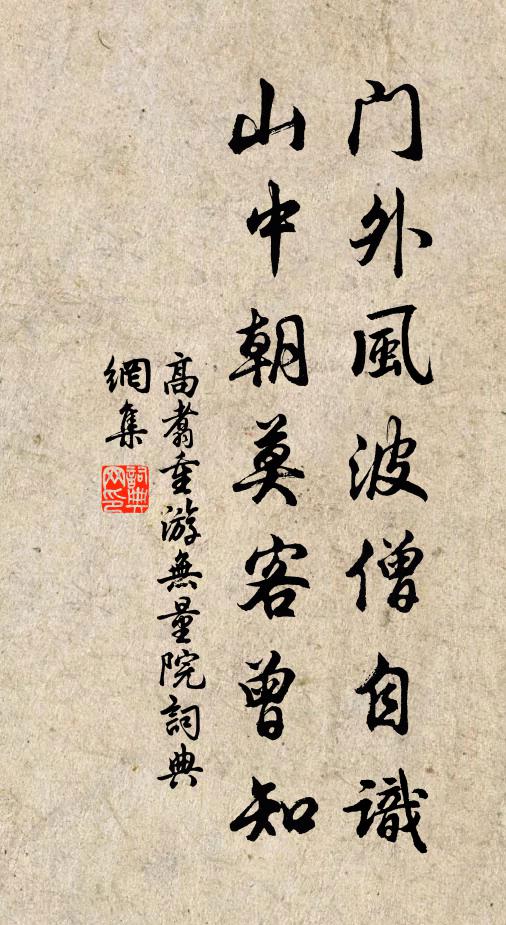 门外風波僧自識
山中朝莫客曾知
高翥重游無量院詞典
網集
詞典
网印